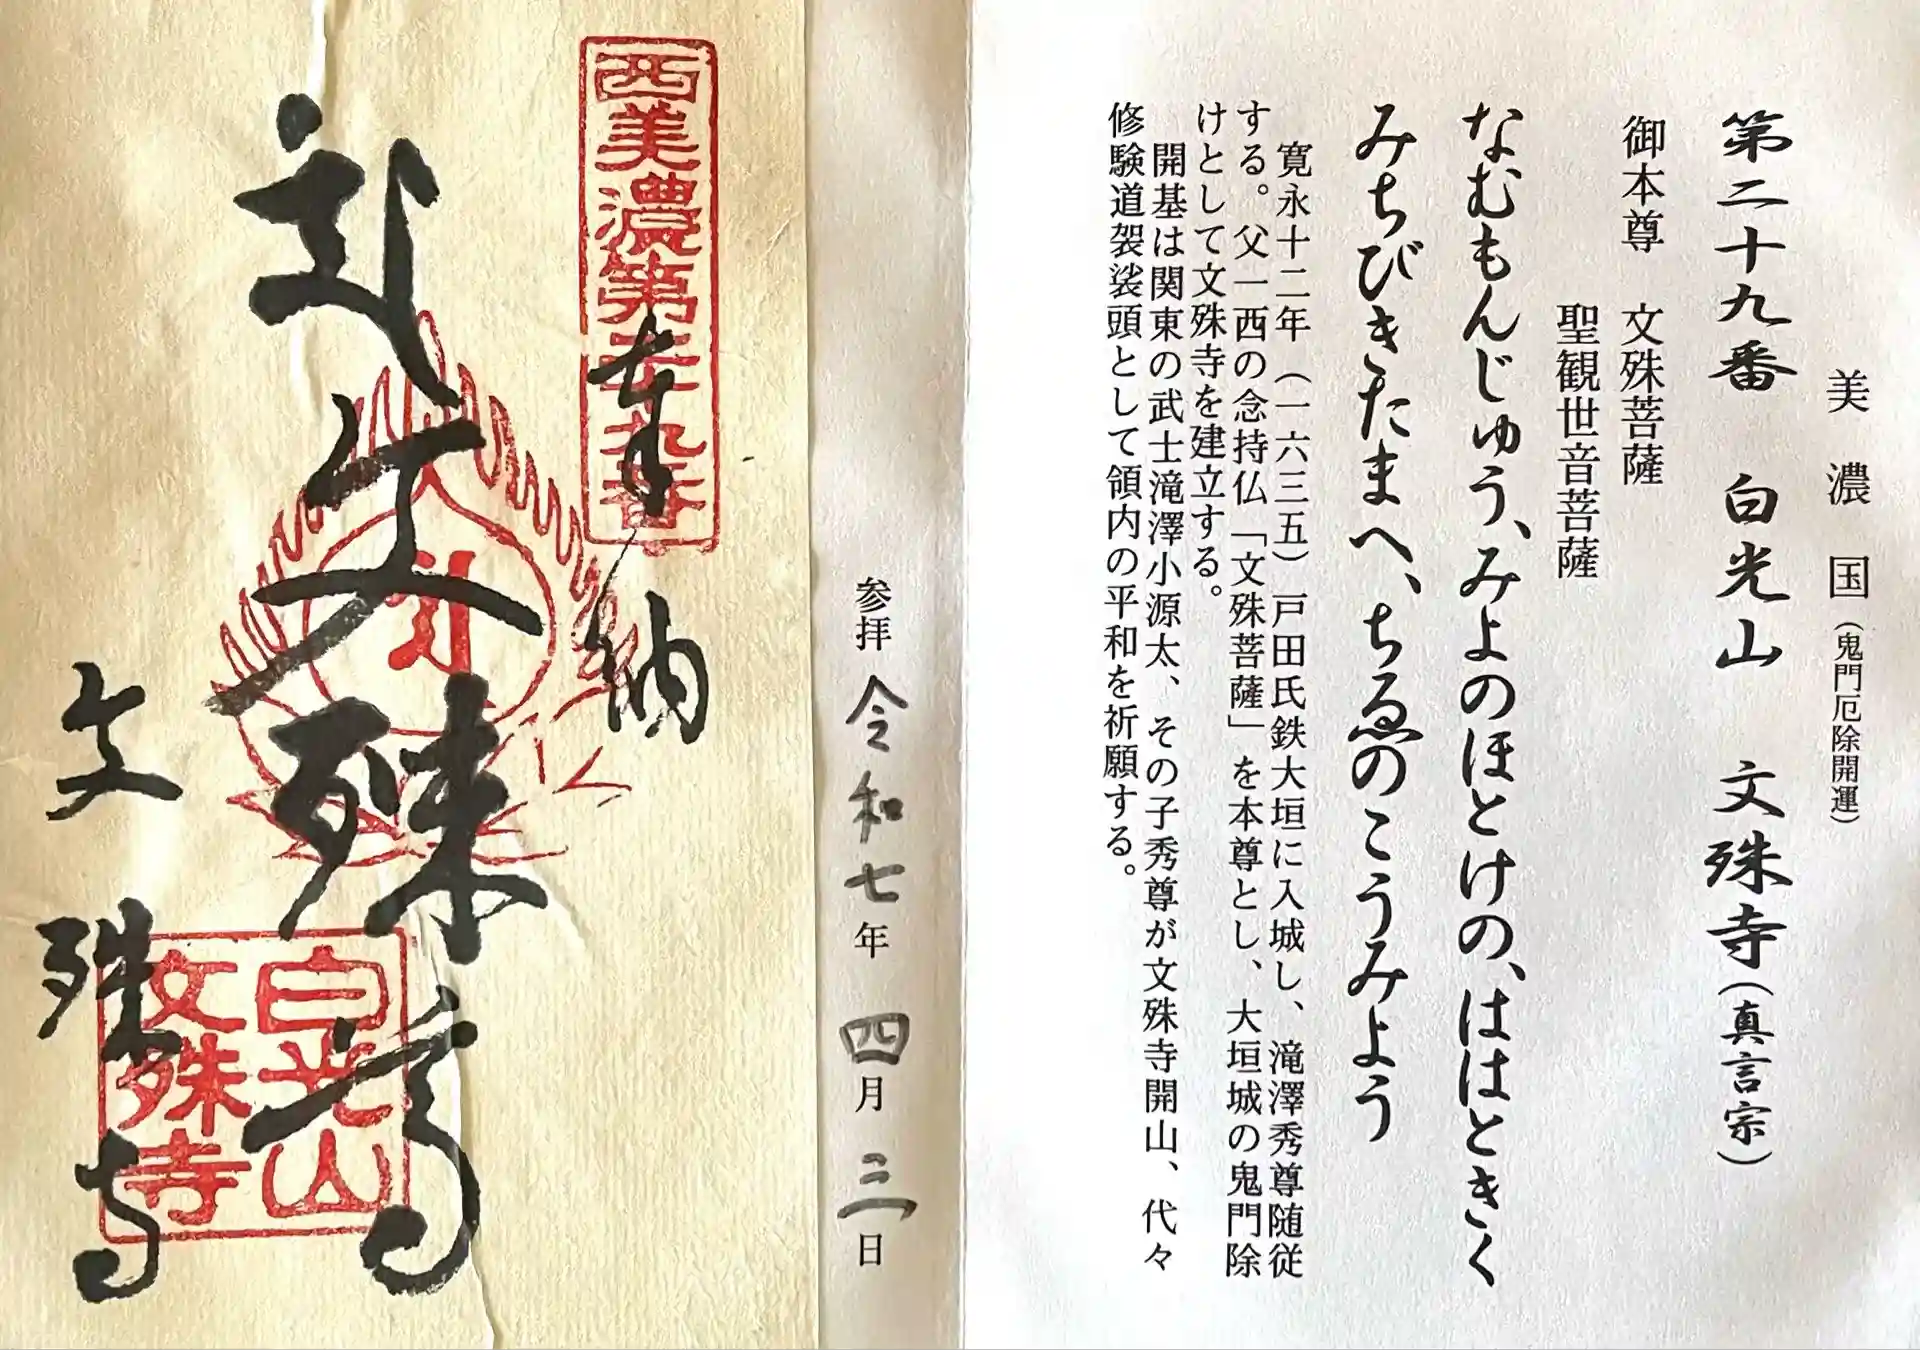 美濃国（鬼門厄除開運）
第二十九番　白光山　文殊寺（真言宗）
御本尊　文殊菩薩
聖観世音菩薩
なむもんじゅう、みよのほとけの、ははときく
みちびきたまへ、ちゑのこうみよう
寛永十二年（一六三五）戸田氏鉄大垣に入城し、滝澤秀尊随従
する。父一西の念持仏「文殊菩薩」を本尊とし、大垣城の鬼門除
けとして文殊寺を建立する。
開基は関東の武士滝澤小源太、その子秀尊が文殊寺開山、代々
修験道袈裟頭として領内の平和を祈願する。
参拝 令和七年 四月 三日
西美濃第二十九番
奉納
文殊
白光山
文殊寺
文殊寺